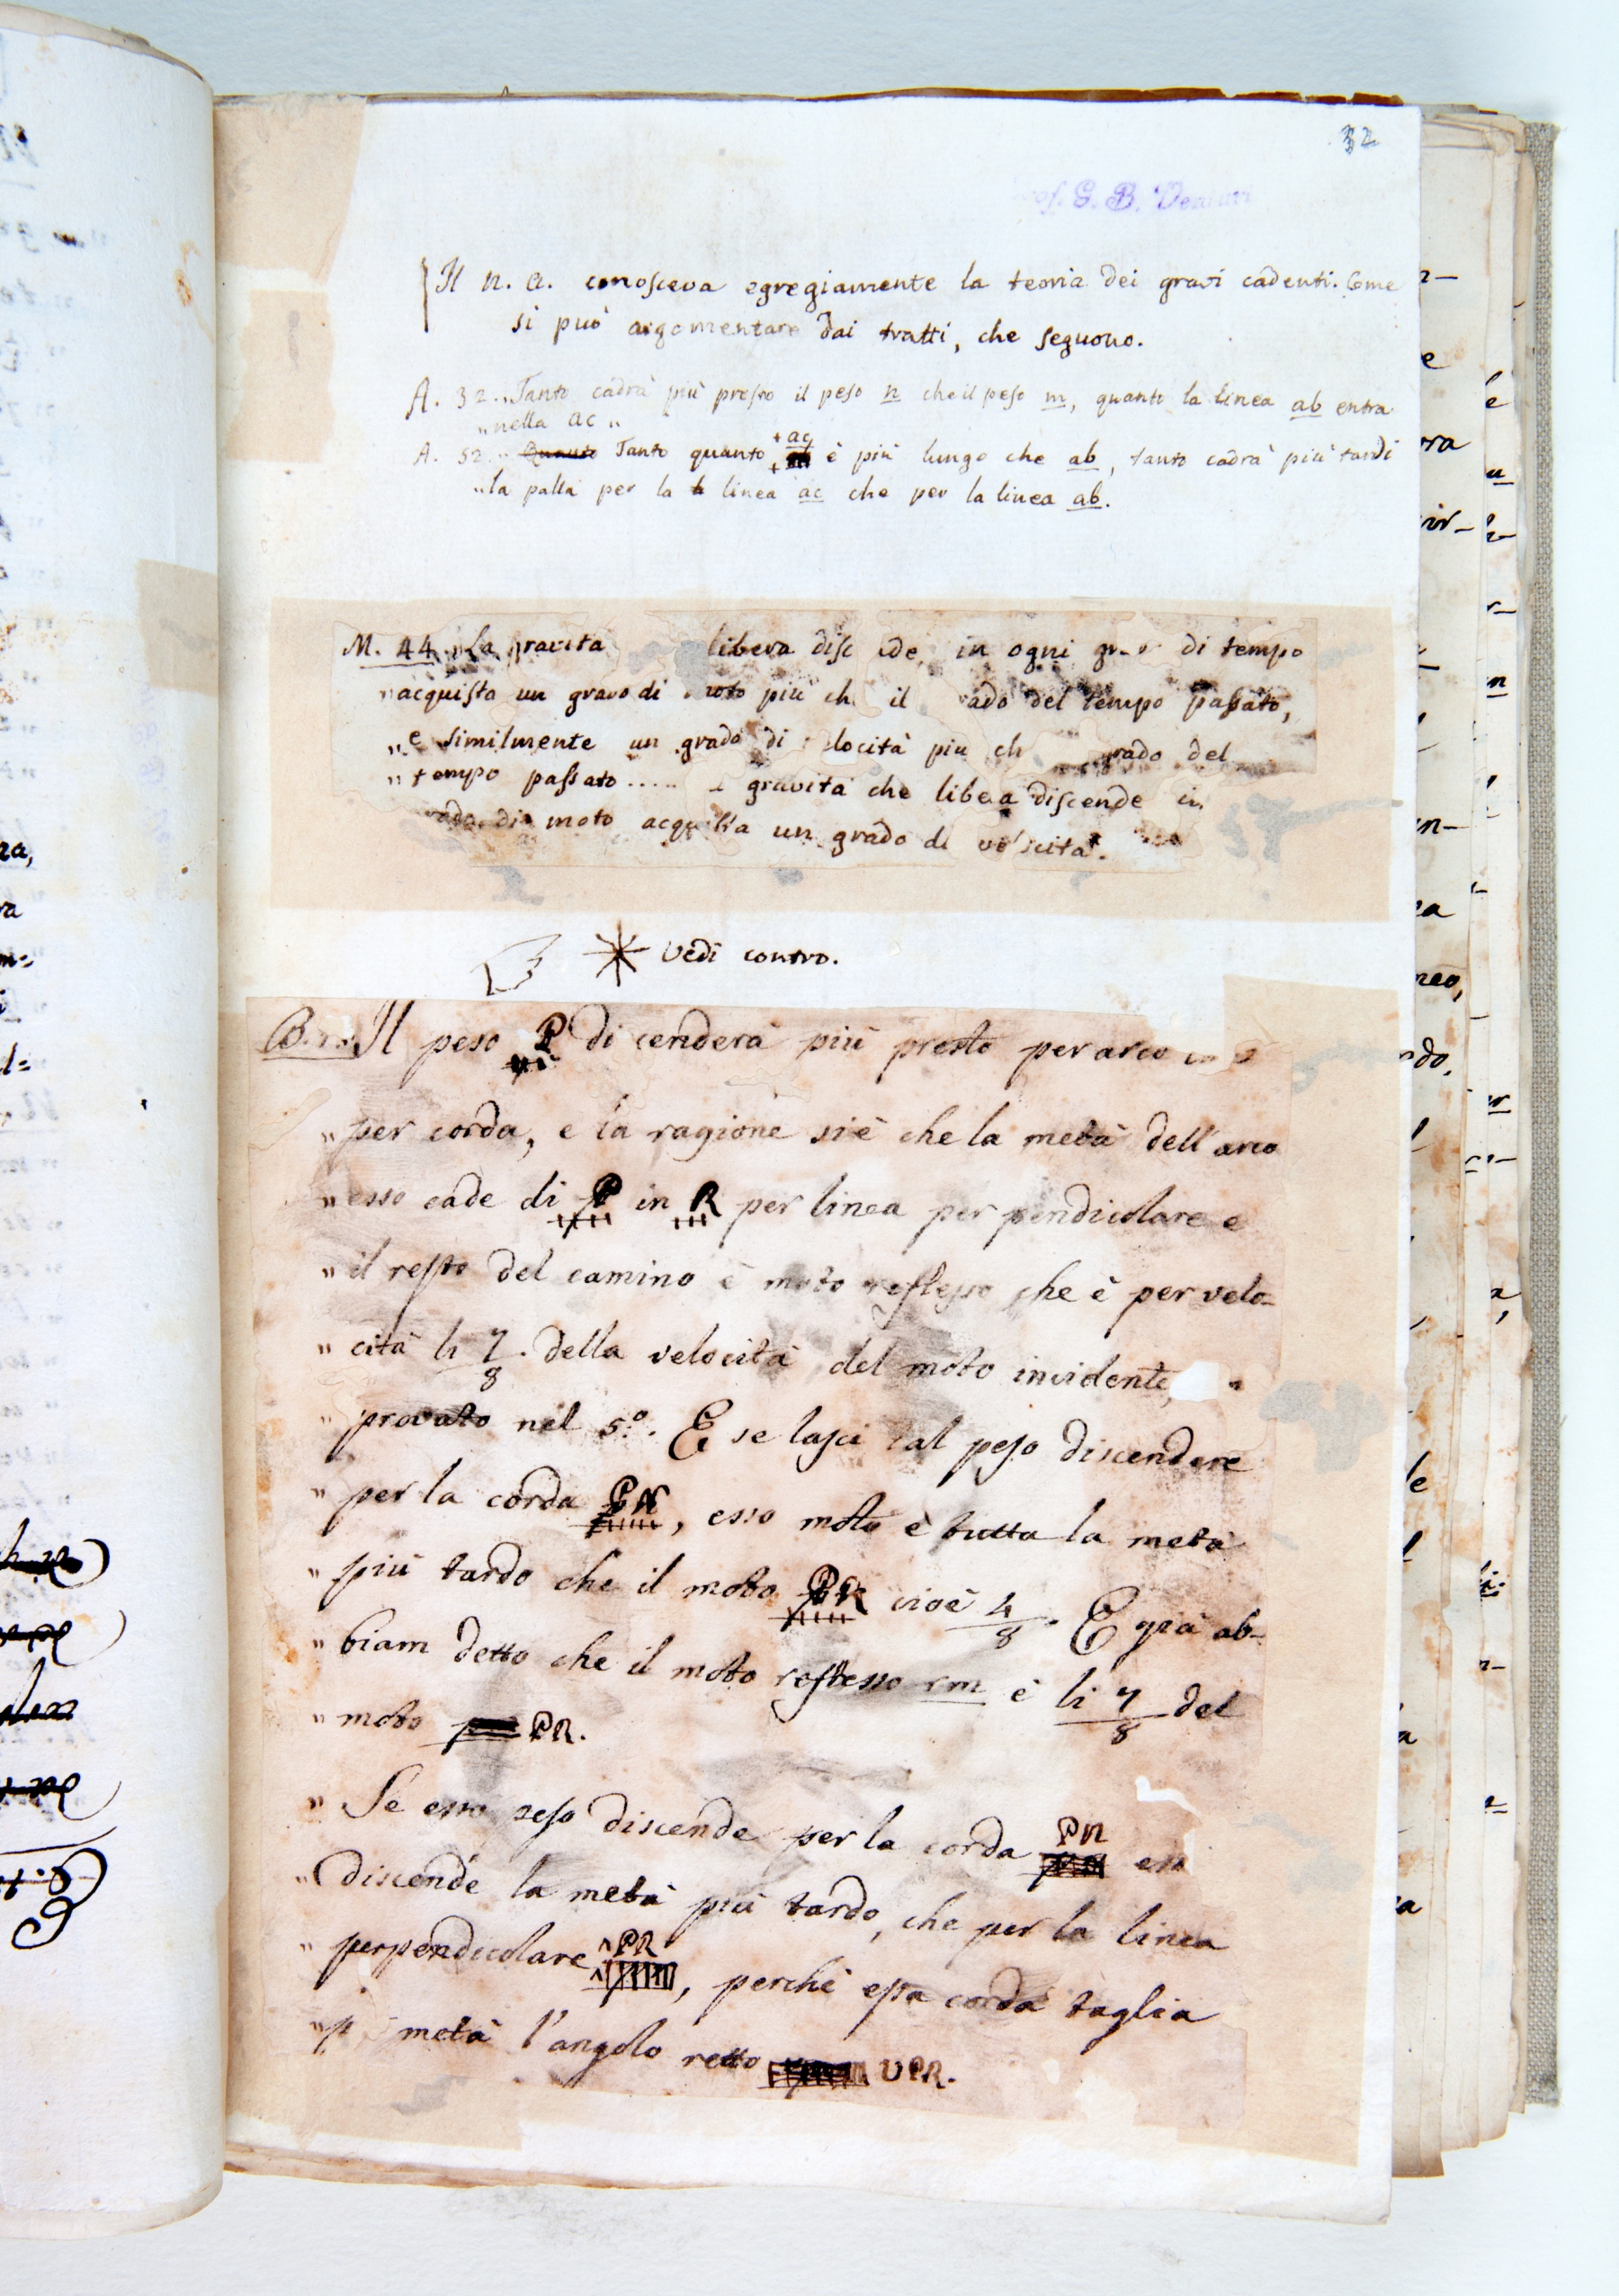 32
G. B. Venturi
Il n. a. conosceva egregiamente la teoria dei gravi cadenti. Come
si può argomentare dai tratti, che seguono.
A. 32. „Tanto cadrà più presto il peso n che il peso m, quanto la linea ab entra
„nella ac„
A. 52. „Quanto Tanto quanto ac è più lungo che ab, tanto cadrà più tardi
„la palla per la linea ac che per la linea ab.
M. 44. „La gravità libera disc de, in ogni gr di tempo
„acquista un grado di moto più ch il ado del tempo passato,
„e similmente un grado di locità più ch grado del
„tempo passato..... gravità che libera discende in
di moto acquista un grado di velocità.
Vedi contro.
B. Il peso P dicenderà più presto per arco
„per corda, e la ragione si è che la metà dell'arco
„esso cade di P in R per linea perpendicolare e
„il resto del camino è moto reflesso che è per velo-
„cità li 7/8 della velocità del moto incidente,
„provato nel 5.º. E se lasci tal peso discendere
„per la corda PN, esso moto è tutta la metà
„più tardo che il moto PR cioè 4/8. E già ab-
„biam detto che il moto reflesso rm è li 7/8 del
„moto PR.
„Se esso peso discende per la corda PN
„discende la metà più tardo, che per la linea
„perpendicolare PR, perchè essa corda taglia
metà l'angolo retto VPR.